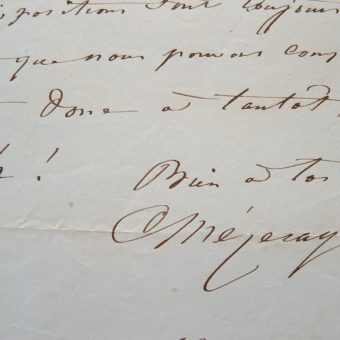 positions sont toujours
que nous pouvons cons
donc à tantôt,
!
Bien à toi
CMézeray